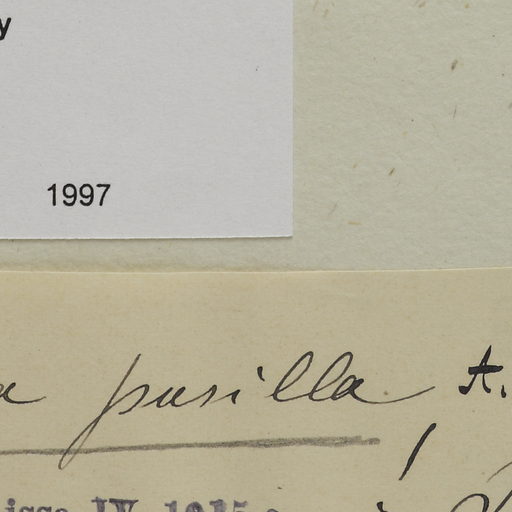 y
1997
a pusilla, A.
IV 1915